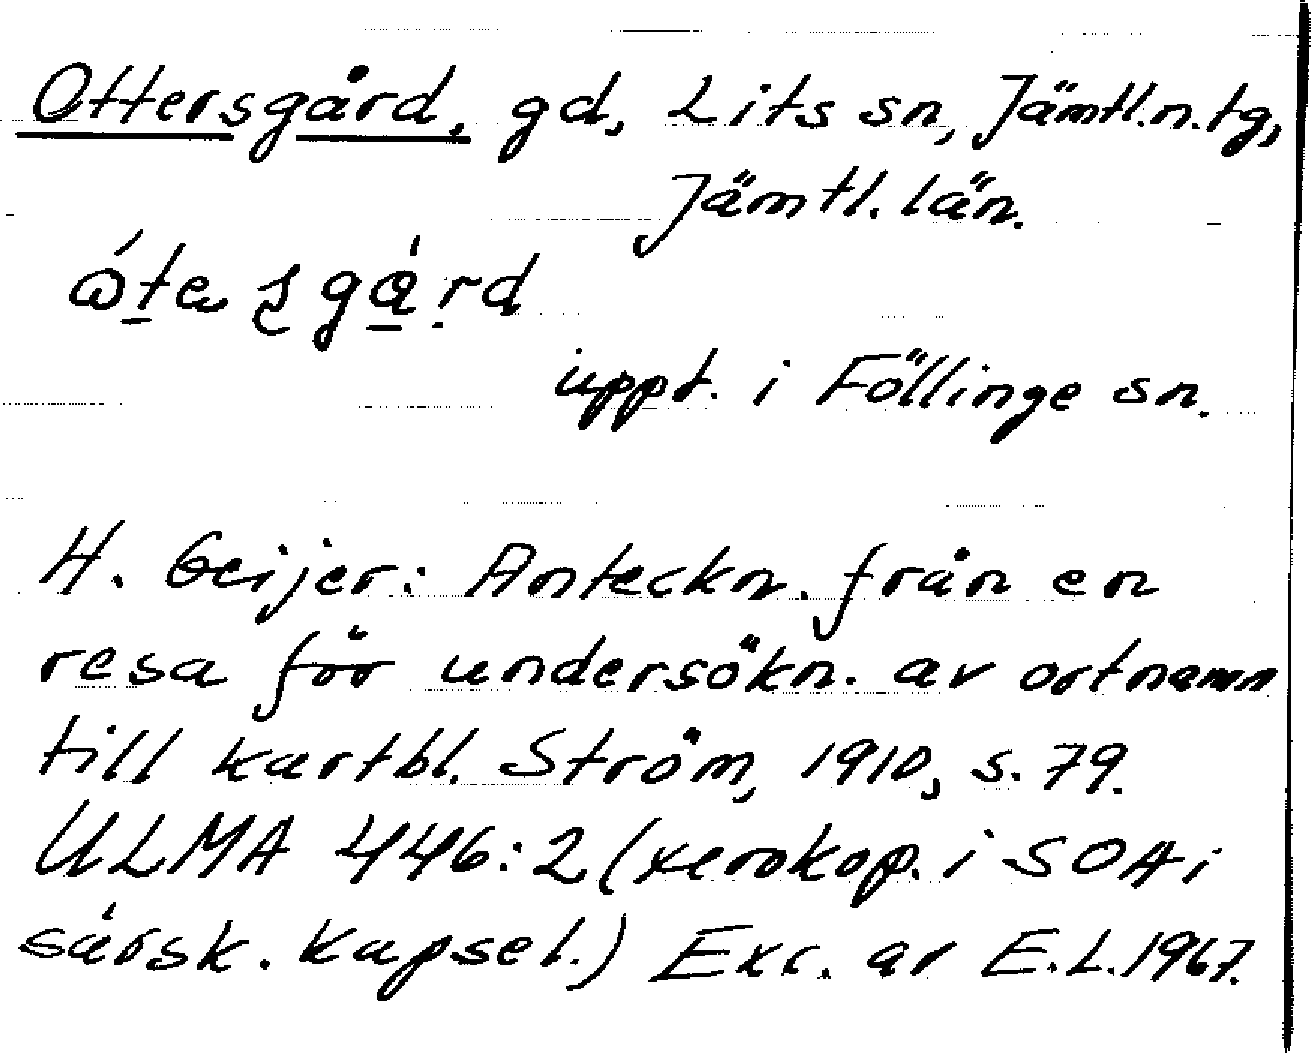 Ottersgård, gd, Lits sn, Jämtl.n.tg,
Jämtl. län.
uppt. i Föllinge sn.
H. Geijer: Anteckn. från en
resa för undersökn. av ortnamn
till kartbl. Ström, 1910, s. 79.
ULMA 446:2 (xerokop. i SOA i
särsk. kapsel.) Exc. av E.L. 1967.